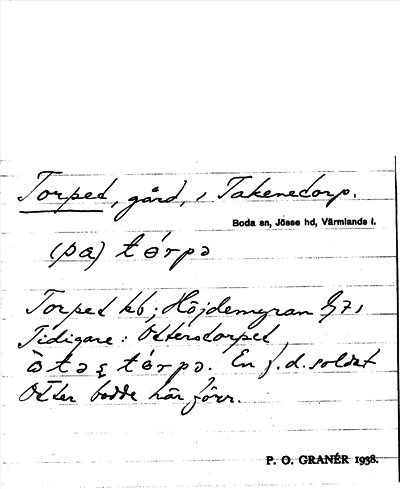 Torped, gård, i Takenetorp.
Boda sn, Jösse hd, Värmlands l.
(på) tɵ́rpə
Torped kb; Höjdemyran
Tidigare: Otterstorped
En f.d. soldat
Otter bodde här förr.
P. O. GRANÉR 1938.